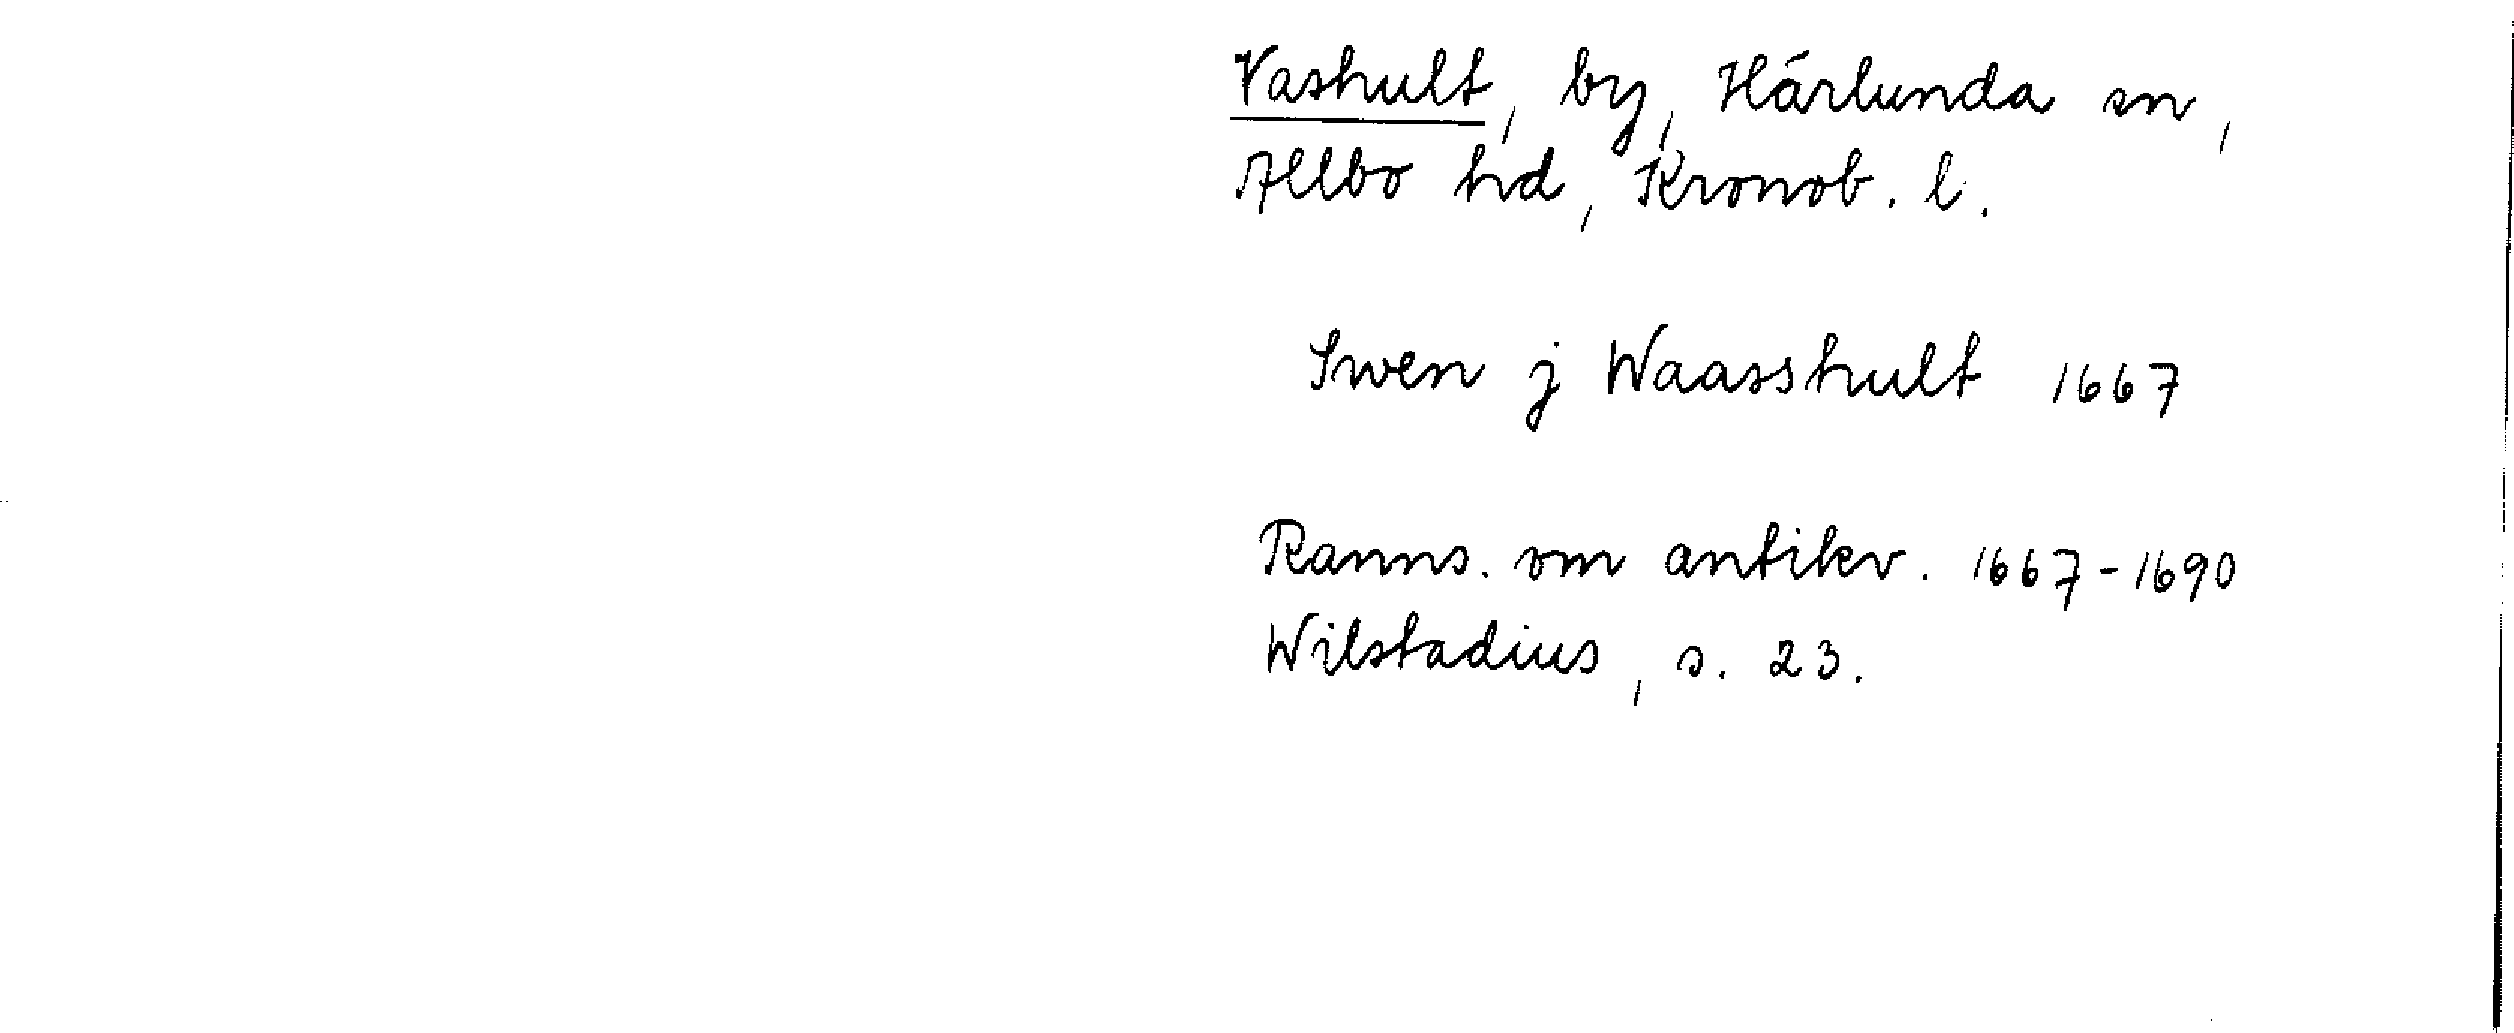 Vashult, by, Härlunda sn,
Allbo hd, Kronob. l.
Swen j Waasshult 1667
Ranns. om antikv. 1667-1690
Wilstadius, s. 23.